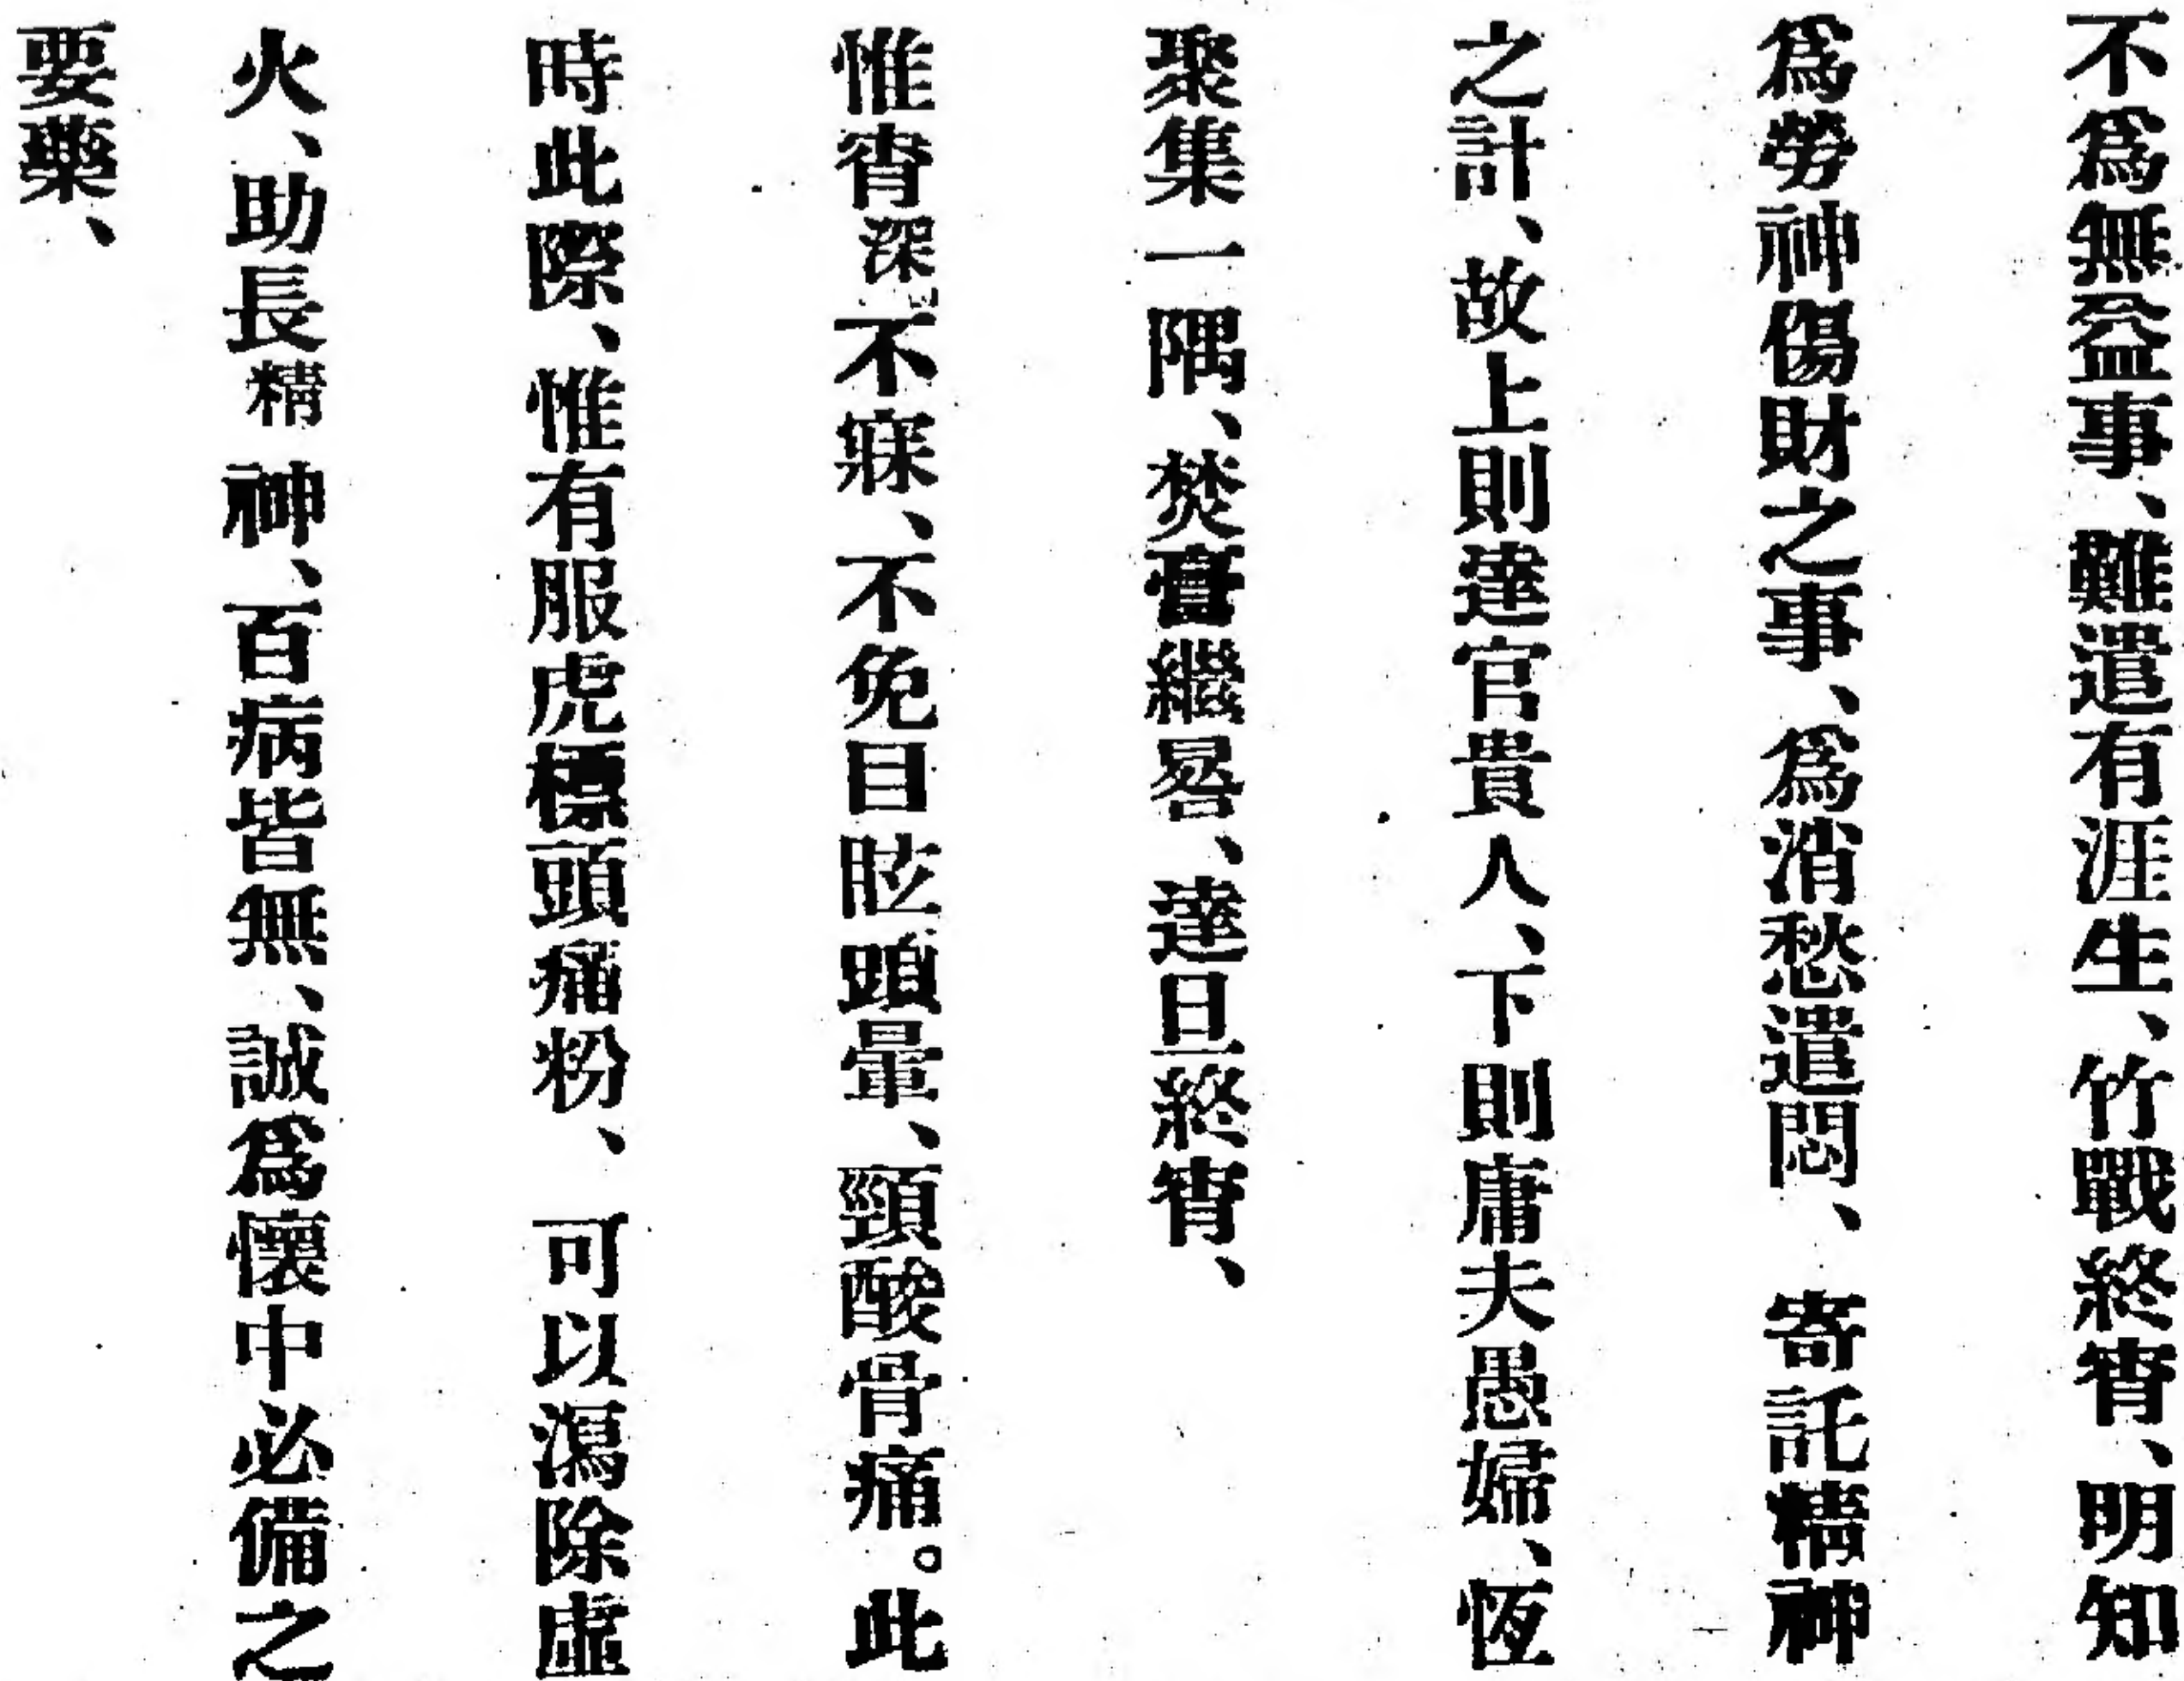 不爲無益事、難遣有涯生、竹戰終宵、明知
爲勞神傷財之事、爲消愁遣悶、寄託精神
之計、故上則達官貴人、下則庸夫愚婦、恆
聚集一隅、焚膏繼晷、達旦終宵、
惟宵深不寐、不免目眩頭暈、頸酸骨痛。此
時此際、惟有服虎標頭痛粉、可以瀉除虛
火、助長精神、百病皆無、誠爲懷中必備之
要藥、